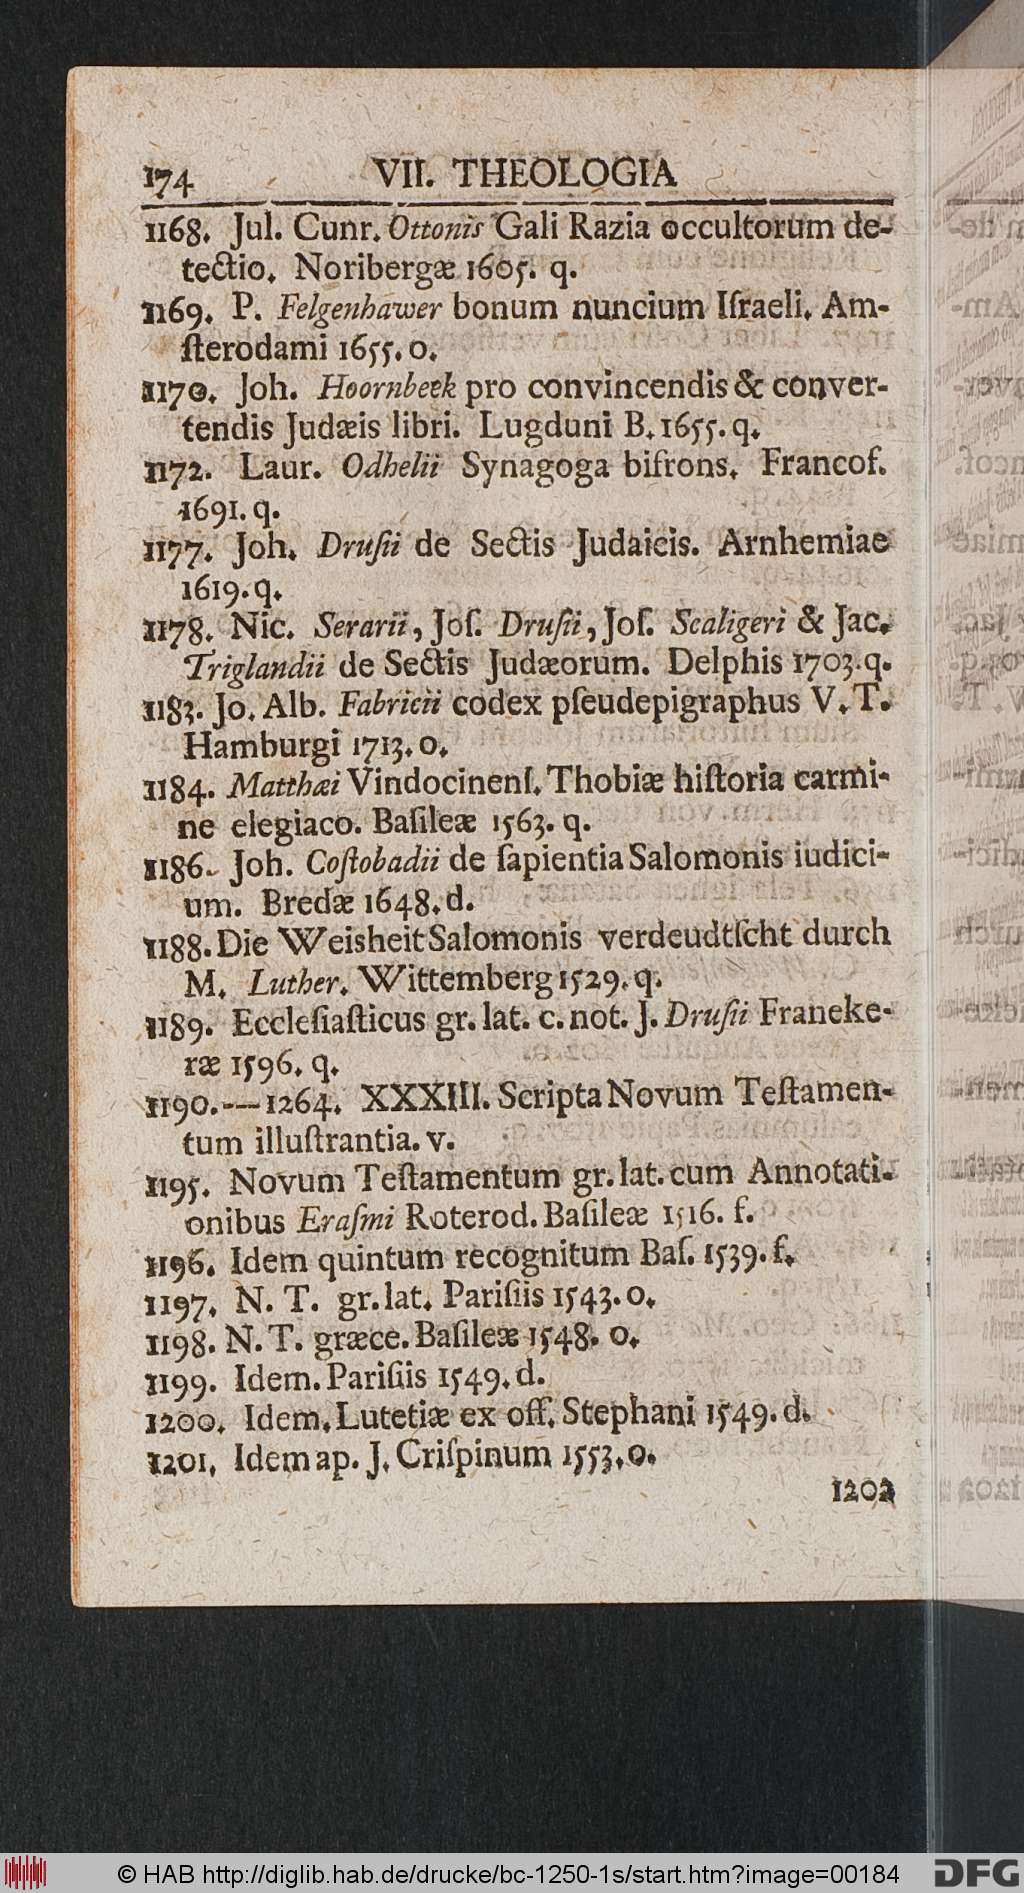 174 VII. THEOLOGIA
1168. Jul. Cunr. Ottonis Gali Razia occultorum de-
tectio. Noribergæ 1605. q.
1169. P. Felgenhawer bonum nuncium Iſraeli. Am-
ſterodami 1655. o.
1170. Joh. Hoornbeek pro convincendis & conver-
tendis Judæis libri. Lugduni B. 1655. q.
1172. Laur. Odhelii Synagoga bifrons. Francof.
1691. q.
1177. Joh. Druſii de Sectis Judaicis. Arnhemiae
1619. q.
1178. Nic. Serarii, Joſ. Druſii, Joſ. Scaligeri & Jac.
Triglandii de Sectis Judæorum. Delphis 1703. q.
1183. Jo. Alb. Fabricii codex pſeudepigraphus V. T.
Hamburgi 1713. o.
1184. Matthæi Vindocinenſ. Thobiæ hiſtoria carmi-
ne elegiaco. Baſileæ 1563. q.
1186. Joh. Coſtobadii de ſapientia Salomonis iudici-
um. Bredæ 1648. d.
1188. Die Weisheit Salomonis verdeudtſcht durch
M. Luther. Wittemberg 1529. q.
1189. Eccleſiaſticus gr. lat. c. not. J. Druſii Franeke-
ræ 1596. q.
1190.---1264. XXXIII. Scripta Novum Teſtamen-
tum illuſtrantia. v.
1195. Novum Teſtamentum gr. lat. cum Annotati-
onibus Eraſmi Roterod. Baſileæ 1516. f.
1196. Idem quintum recognitum Baſ. 1539. f.
1197. N. T. gr. lat. Pariſiis 1543. o.
1198. N. T. græce. Baſileæ 1548. o.
1199. Idem. Pariſiis 1549. d.
1200. Idem. Lutetiæ ex off. Stephani 1549. d.
1201. Idem ap. J. Criſpinum 1553. o.
1202
© HAB http://diglib.hab.de/drucke/bc-1250-1s/start.htm?image=00184
DFG